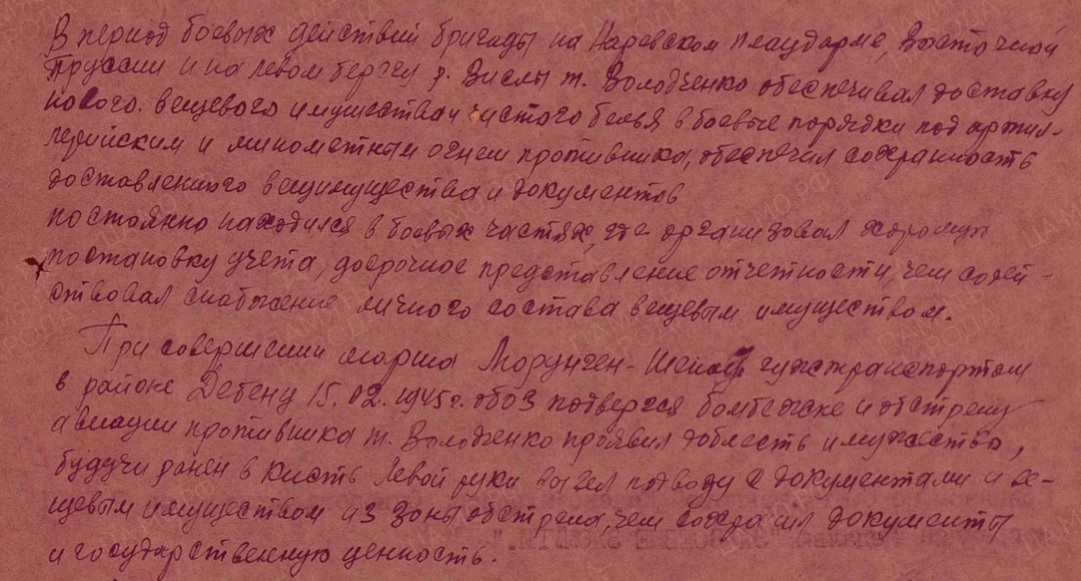 В период боевых действий бригады на Наревском плацдарме, Восточной
Пруссии и на левом берегу р. Вислы т. Володченко обеспечивал доставку
нового вещевого имущества и чистого белья в боевые порядки под артил-
лерийским и минометным огнем противника, обеспечил сохранность
доставленного вещимущества и документов
постоянно находился в боевых частях, где организовал хорошую
постановку учета, досрочное представление отчетности, чем содей-
ствовал снабжение личного состава вещевым имуществом.
При совершении марша Морунген - гужтранспортом
в районе Дебену 15.02.1945г. обоз подвергся бомбежке и обстрелу
авиации противника т. Володченко проявил доблесть и мужество,
будучи ранен в кисть левой руки вывел подводу с документами и ве-
щевым имуществом из зоны обстрела, чем сохранил документы
и государственную ценность.